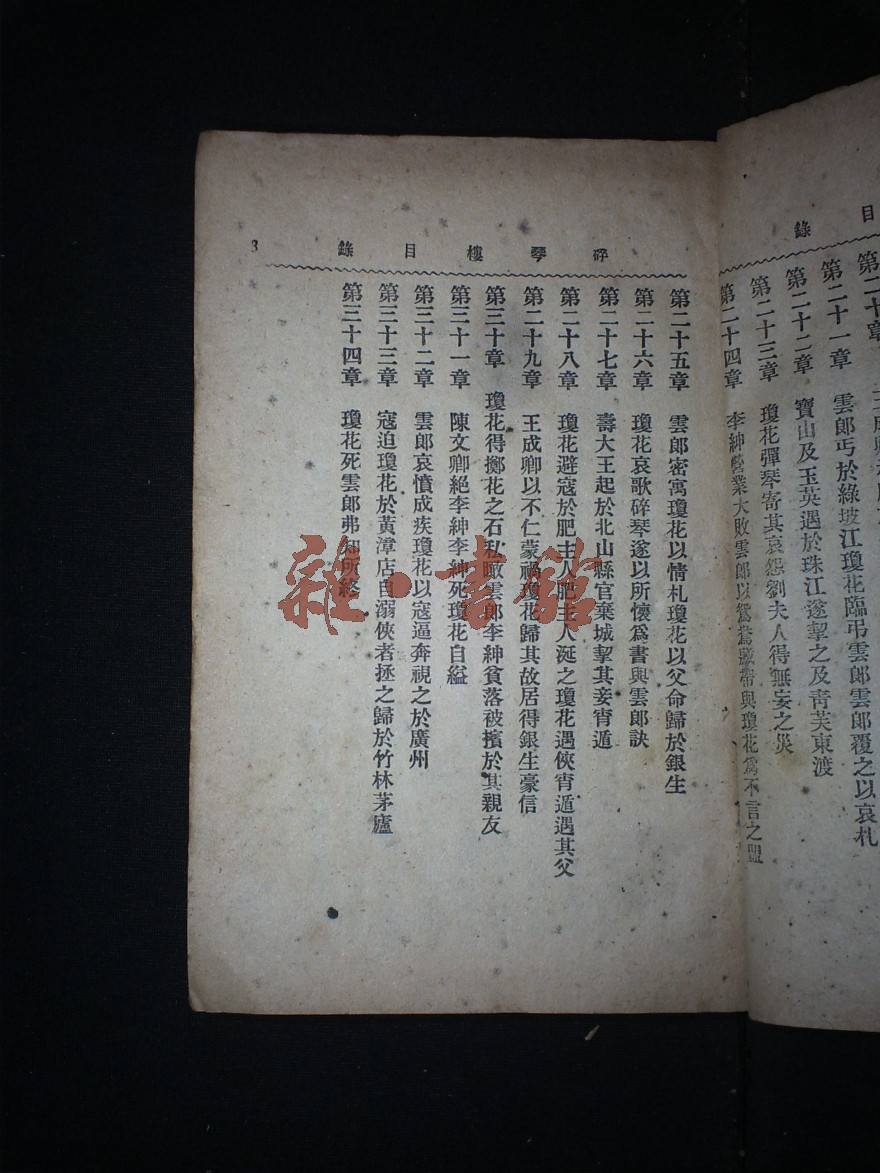 目錄
第二十章
第二十一章 雲郎丐於綠坡江瓊花臨弔雲郎雲郎覆之以哀札
第二十二章 寶山及玉英遇於珠江遂挈之及靑芙東渡
第二十三章 瓊花彈琴寄其哀怨劉夫人得無妄之災
第二十四章 李紳營業大敗雲郎以鴛鴦帶與瓊花爲不言之盟
碎琴樓目錄 3
第二十五章 雲郎密寓瓊花以情札瓊花以父命歸於銀生
第二十六章 瓊花哀歌碎琴遂以所懷爲書與雲郎訣
第二十七章 壽大王起於北山縣官棄城挈其妾宵遁
第二十八章 瓊花避寇於肥主人肥主人涎之瓊花遇俠宵遁遇其父
第二十九章 王成卿以不仁蒙禍瓊花歸其故居得銀生豪信
第三十章 瓊花得擲花之石私瞰雲郎李紳貧落被擯於其親友
第三十一章 陳文卿絕李紳李紳死瓊花自縊
第三十二章 雲郎哀憤成疾瓊花以寇逼奔視之於廣州
第三十三章 寇迫瓊花於黃漳店自溺俠者拯之歸於竹林茅廬
第三十四章 瓊花死雲郎弗知所終
雜·書館